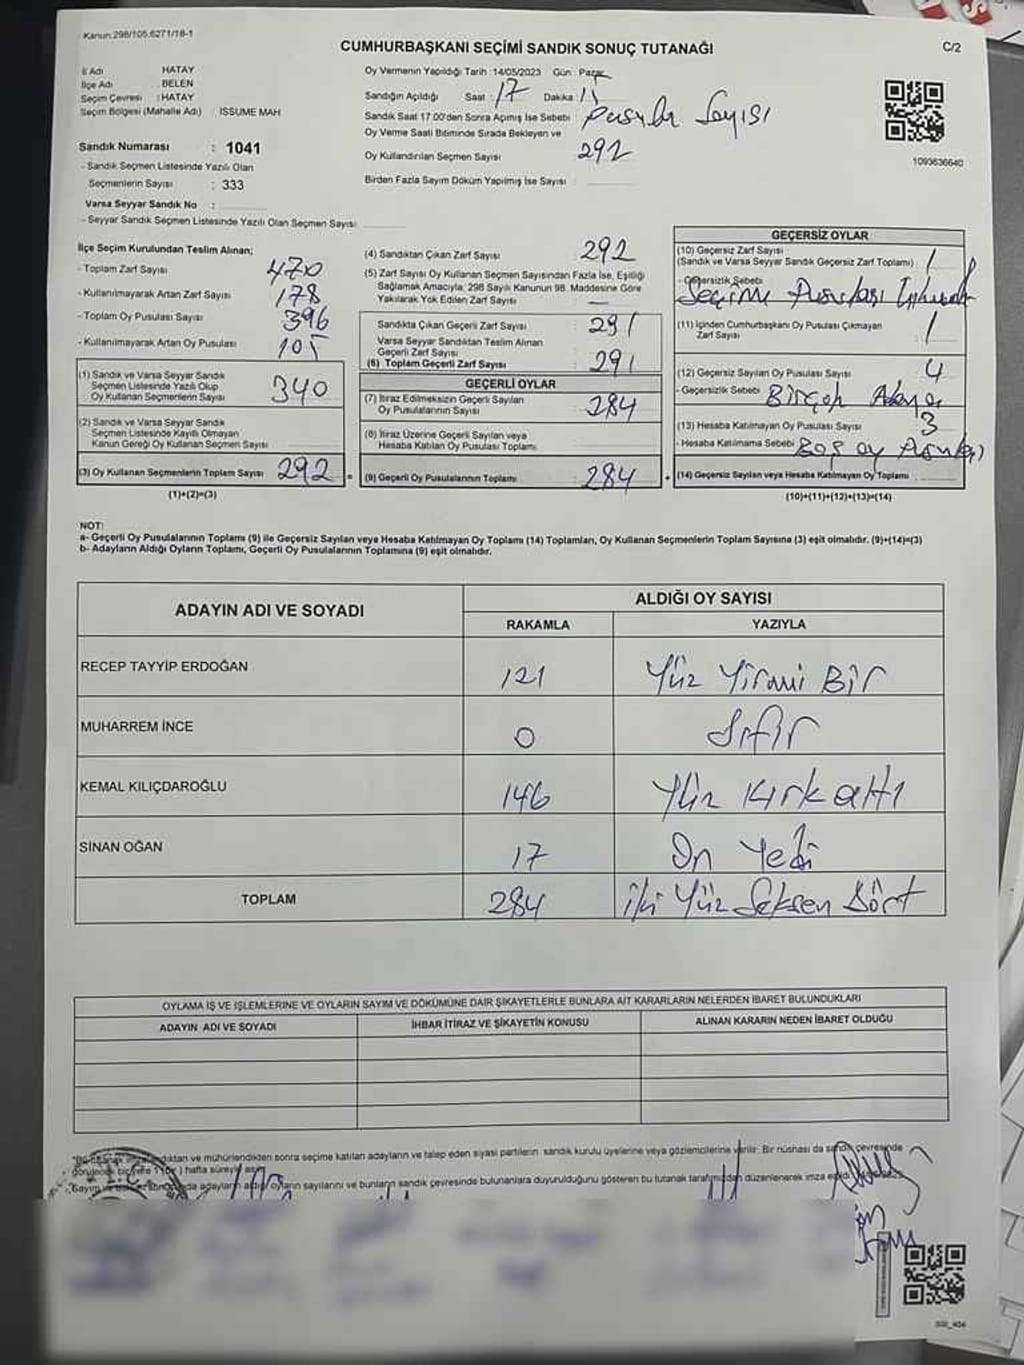 Kanun:298/105.6271/18-1
CUMHURBAŞKANI SEÇİMİ SANDIK SONUÇ TUTANAĞI
C/2
İl Adı HATAY
İlçe Adı BELEN
Seçim Çevresi : HATAY
Seçim Bölgesi (Mahalle Adı) ISSUME MAH
Sandık Numarası : 1041
- Sandık Seçmen Listesinde Yazılı Olan
Seçmenlerin Sayısı : 333
Varsa Seyyar Sandık No :
- Seyyar Sandık Seçmen Listesinde Yazılı Olan Seçmen Sayısı
Oy Vermenin Yapıldığı Tarih :14/05/2023 Gün : Pazar
Sandığın Açıldığı Saat : 17 Dakika : 11
Sandık Saat 17.00'den Sonra Açımış İse Sebebi : Pusula Sayısı
Oy Verme Saati Bitiminde Sırada Bekleyen ve
Oy Kullandırılan Seçmen Sayısı 292
Birden Fazla Sayım Döküm Yapılmış İse Sayısı :
1093636640
İlçe Seçim Kurulundan Teslim Alınan;
- Toplam Zarf Sayısı 470
- Kullanılmayarak Artan Zarf Sayısı 178
- Toplam Oy Pusulası Sayısı 396
- Kullanılmayarak Artan Oy Pusulası 105
(1) Sandık ve Varsa Seyyar Sandık
Seçmen Listesinde Yazılı Olup
Oy Kullanan Seçmenlerin Sayısı 340
(2) Sandık ve Varsa Seyyar Sandık
Seçmen Listesinde Kayıtlı Olmayan
Kanun Gereği Oy Kullanan Seçmen Sayısı
(3) Oy Kullanan Seçmenlerin Toplam Sayısı 292 =
(1)+(2)=(3)
(4) Sandıktan Çıkan Zarf Sayısı 292
(5) Zarf Sayısı Oy Kullanan Seçmen Sayısından Fazla İse, Eşitliği
Sağlamak Amacıyla, 298 Sayılı Kanunun 98. Maddesine Göre
Yakılarak Yok Edilen Zarf Sayısı —
Sandıkta Çıkan Geçerli Zarf Sayısı : 291
Varsa Seyyar Sandıktan Teslim Alınan
Geçerli Zarf Sayısı
(6) Toplam Geçerli Zarf Sayısı : 291
GEÇERLİ OYLAR
(7) İtiraz Edilmeksizin Geçerli Sayılan
Oy Pusulalarının Sayısı : 284
(8) İtiraz Üzerine Geçerli Sayılan veya
Hesaba Katılan Oy Pusulası Toplamı
(9) Geçerli Oy Pusulalarının Toplamı : 284 +
GEÇERSİZ OYLAR
(10) Geçersiz Zarf Sayısı
(Sandık ve Varsa Seyyar Sandık Geçersiz Zarf Toplamı) 1
- Geçersizlik Sebebi
Seçime Pusulası
(11) İçinden Cumhurbaşkanı Oy Pusulası Çıkmayan
Zarf Sayısı 1
(12) Geçersiz Sayılan Oy Pusulası Sayısı 4
- Geçersizlik Sebebi Birçok Adaya
(13) Hesaba Katılmayan Oy Pusulası Sayısı 3
- Hesaba Katılmama Sebebi Boş oy Pusulası
(14) Geçersiz Sayılan veya Hesaba Katılmayan Oy Toplamı
(10)+(11)+(12)+(13)=(14)
NOT:
a- Geçerli Oy Pusulalarının Toplamı (9) ile Geçersiz Sayılan veya Hesaba Katılmayan Oy Toplamı (14) Toplamları, Oy Kullanan Seçmenlerin Toplam Sayısına (3) eşit olmalıdır. (9)+(14)=(3)
b- Adayların Aldığı Oyların Toplamı, Geçerli Oy Pusulalarının Toplamına (9) eşit olmalıdır.
ADAYIN ADI VE SOYADI
ALDIĞI OY SAYISI
RAKAMLA YAZIYLA
RECEP TAYYİP ERDOĞAN 121 Yüz Yirmi Bir
MUHARREM İNCE 0 Sıfır
KEMAL KILIÇDAROĞLU 146 Yüz Kırk altı
SİNAN OĞAN 17 On Yedi
TOPLAM 284 iki Yüz Seksen Dört
OYLAMA İŞ VE İŞLEMLERİNE VE OYLARIN SAYIM VE DÖKÜMÜNE DAİR ŞİKAYETLERLE BUNLARA AİT KARARLARIN NELERDEN İBARET BULUNDUKLARI
ADAYIN ADI VE SOYADI İHBAR İTİRAZ VE ŞİKAYETİN KONUSU ALINAN KARARIN NEDEN İBARET OLDUĞU
ve mühürlendikten sonra seçime katılan adayların ve talep eden siyasi partilerin sandık kurulu üyelerine veya gözlemcilerine verilir. Bir nüshası da sandık çevresinde
görülecek bir yere 1 (bir) hafta süreyle asılır.
adayların aldığı oyların sayılarını ve bunların sandık çevresinde bulunanlara duyurulduğunu gösteren bu tutanak tarafımızdan düzenlenerek imza